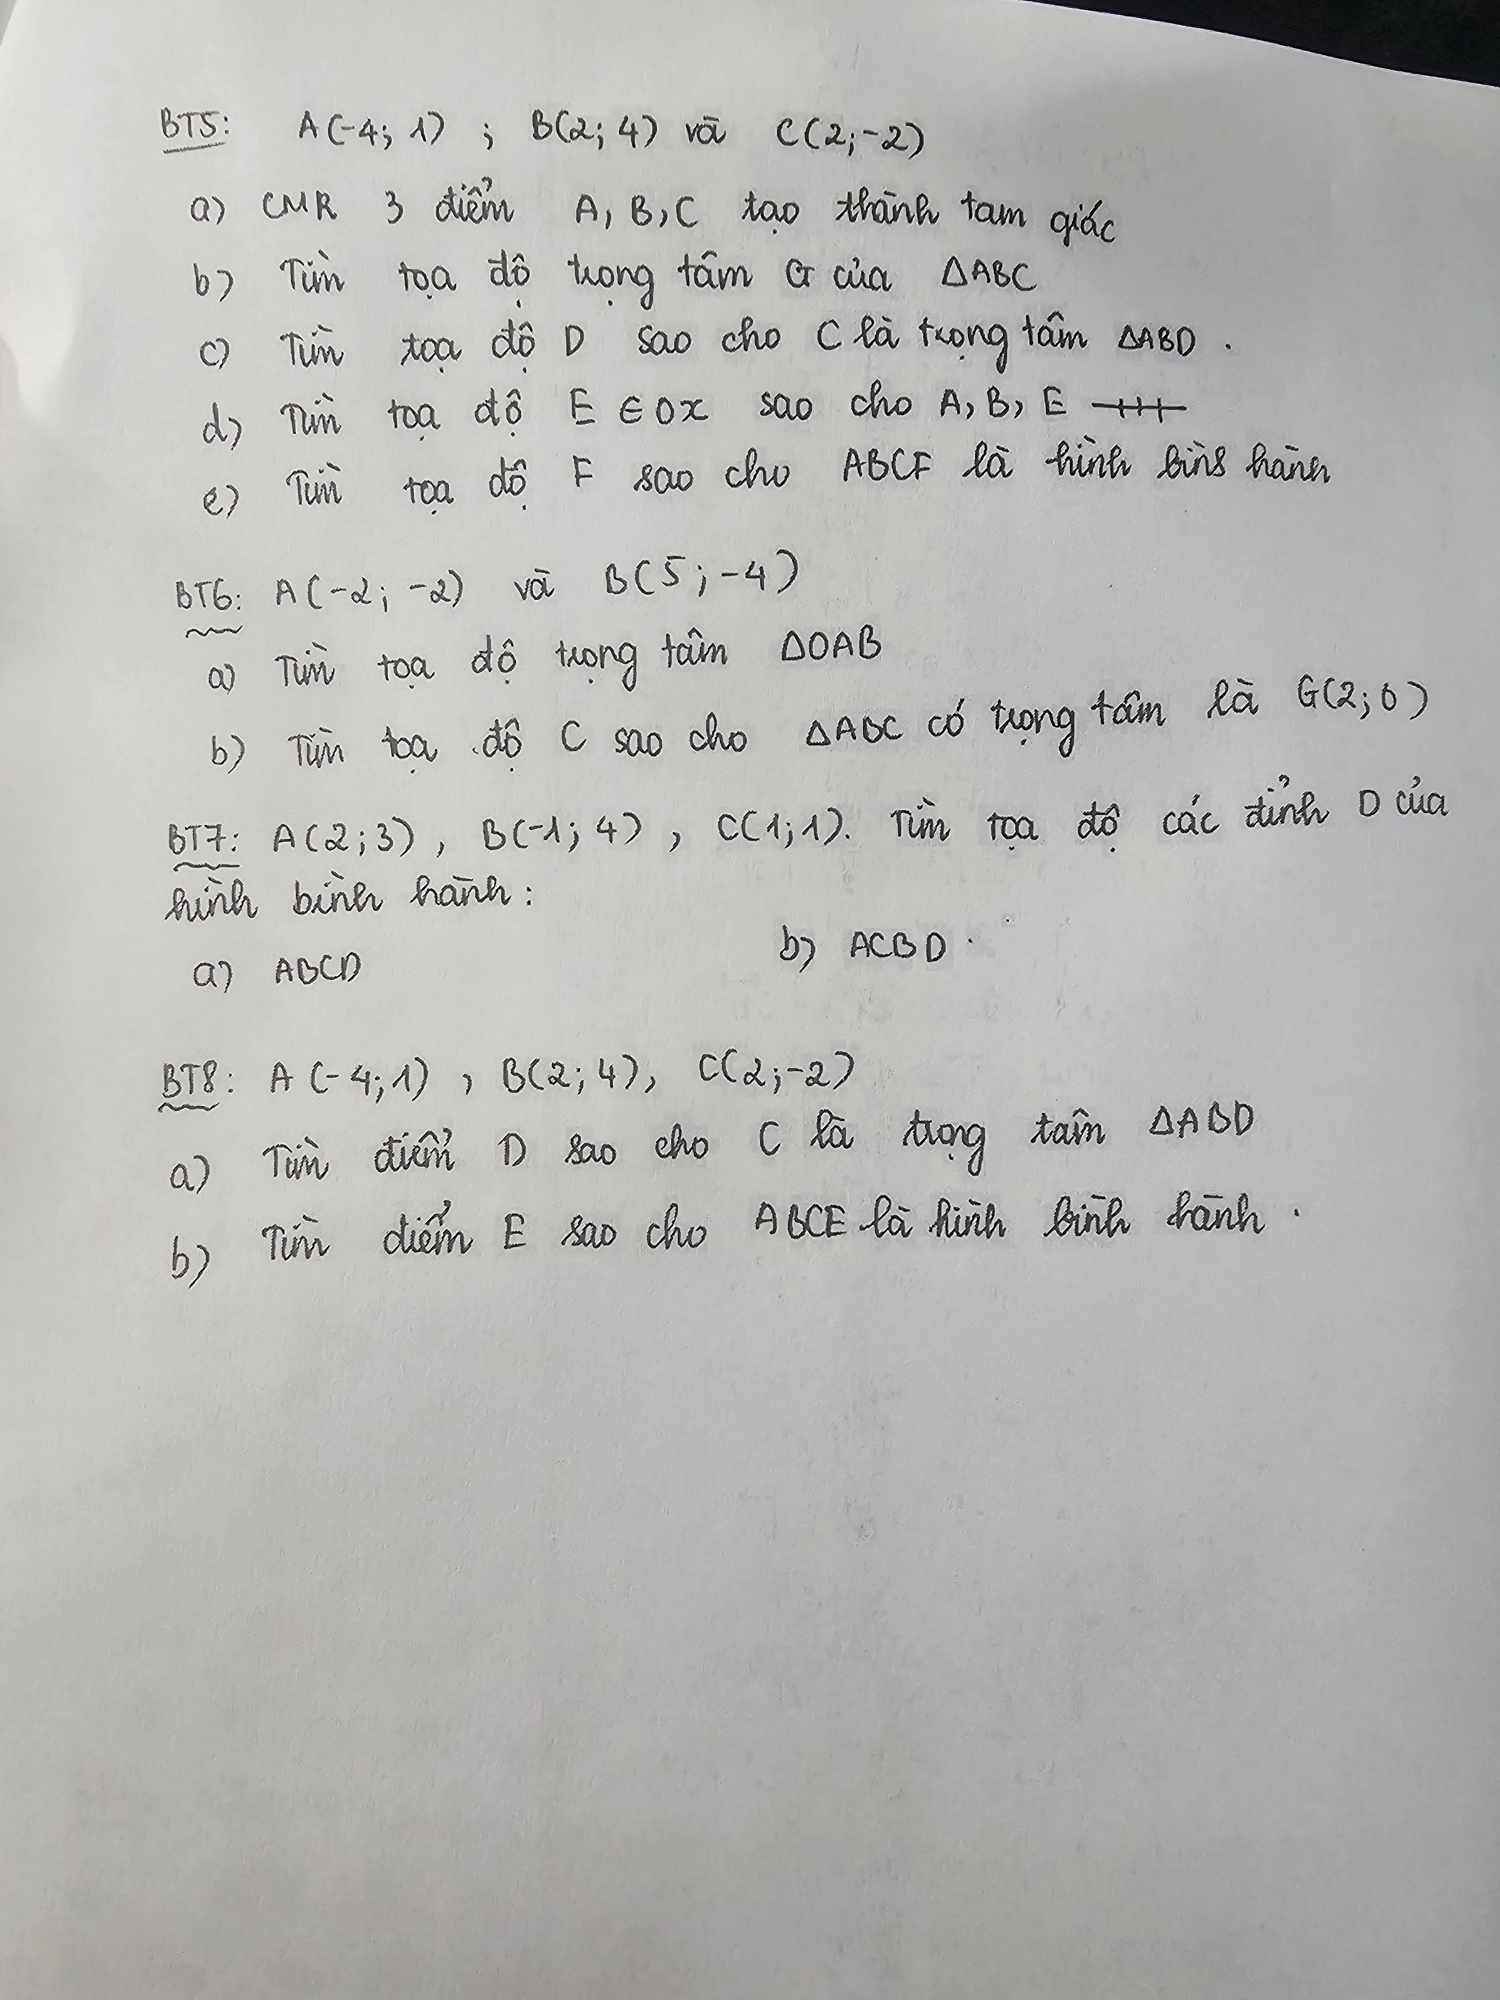 BT5: A(-4; 1) ; B(2; 4) và C(2; -2)
a) CMR 3 điểm A, B, C tạo thành tam giác
b) Tìm tọa độ trọng tâm G của ΔABC
c) Tìm tọa độ D sao cho C là trọng tâm ΔABD.
d) Tìm tọa độ E ∈ Ox sao cho A, B, E
e) Tìm tọa độ F sao cho ABCF là hình bình hành
BT6: A(-2; -2) và B(5; -4)
a) Tìm tọa độ trọng tâm ΔOAB
b) Tìm tọa độ C sao cho ΔABC có trọng tâm là G(2; 0)
BT7: A(2; 3), B(-1; 4), C(1; 1). Tìm tọa độ các đỉnh D của
hình bình hành:
a) ABCD b) ACBD.
BT8: A(-4; 1), B(2; 4), C(2; -2)
a) Tìm điểm D sao cho C là trọng tâm ΔABD
b) Tìm điểm E sao cho ABCE là hình bình hành.